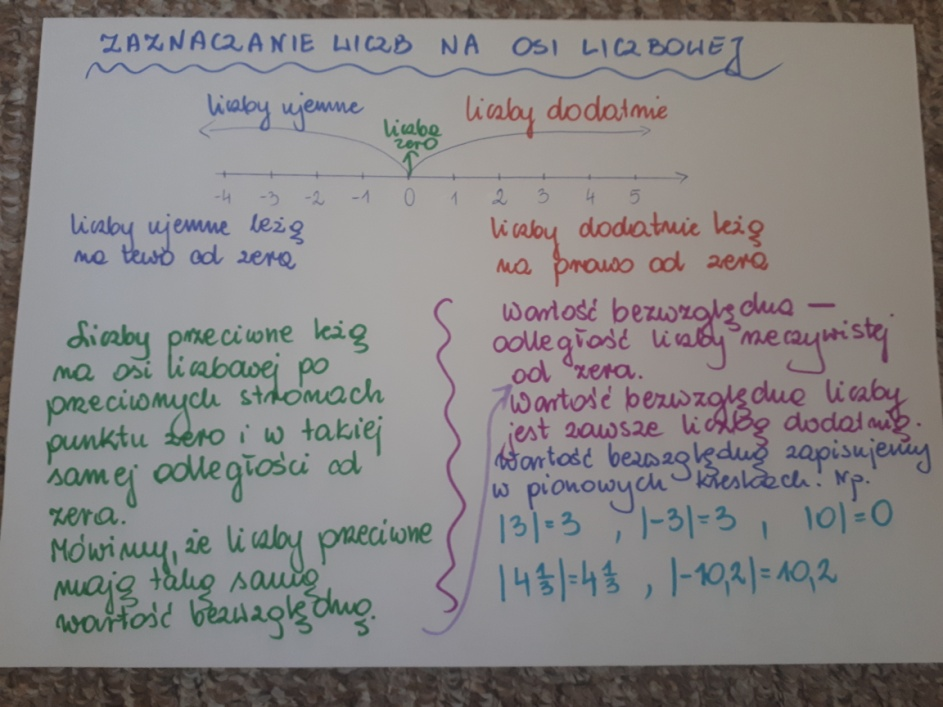 ZAZNACZANIE LICZB NA OSI LICZBOWEJ
liczby ujemne
liczby dodatnie
liczba
zero
-4 -3 -2 -1 0 1 2 3 4 5
liczby ujemne leżą
na lewo od zera
liczby dodatnie leżą
na prawo od zera
Liczby przeciwne leżą
na osi liczbowej po
przeciwnych stronach
punktu zero i w takiej
samej odległości od
zera.
Mówimy, że liczby przeciwne
mają taką samą
wartość bezwzględną.
Wartość bezwzględna —
odległość liczby rzeczywistej
od zera.
Wartość bezwzględna liczby
jest zawsze liczbą dodatnią.
Wartość bezwzględną zapisujemy
w pionowych kreskach. Np.
|3|=3 , |-3|=3 , |0|=0
|4 1/3|=4 1/3 , |-10,2|=10,2